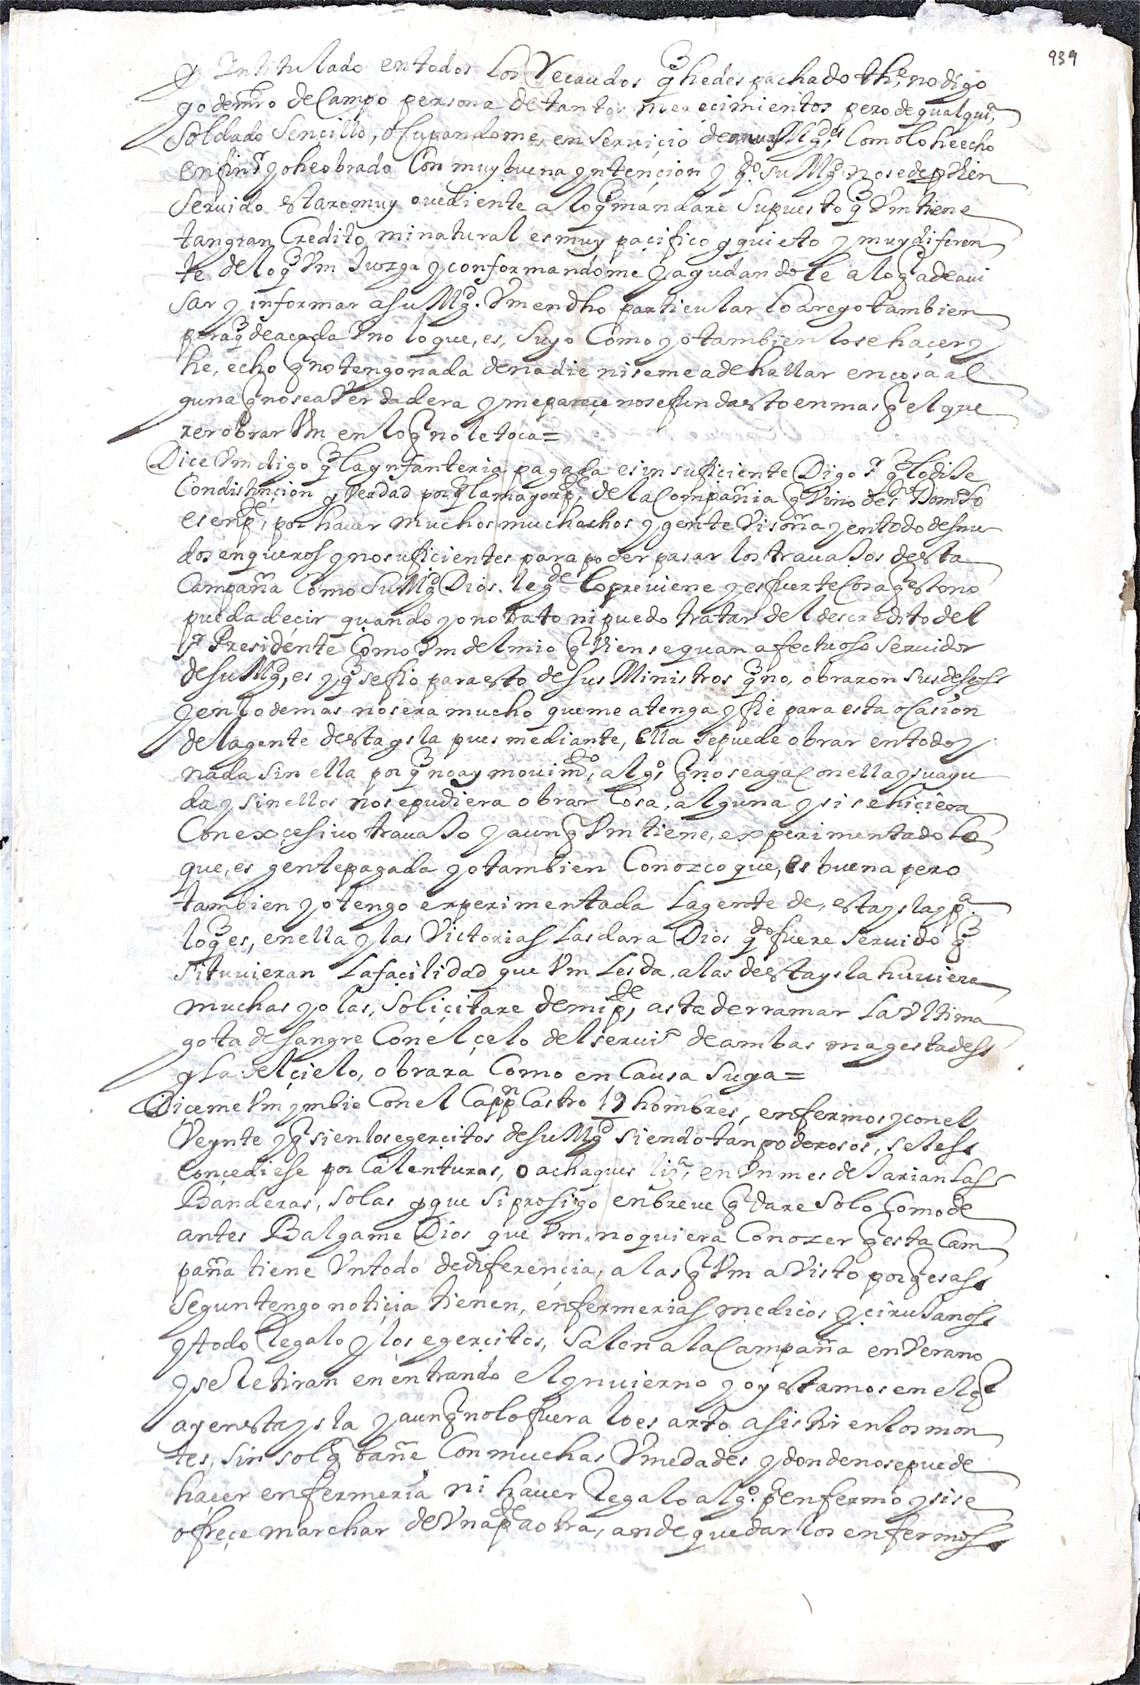 939
Y Intitulado entodos los Recaudos q̃ hedespachado thẽ no digo
yo de mro de Campo persona de tantos merecimientos pero de qualquiª
Soldado Sencillo, ocupandome, en Servicio de Mgd Como lo he echo
en fin Sr yo heobrado Con muy buena yntencion y qdo su Mgd nosede por vien
Servido estare muy ovediente alo q̃ mandare Supuesto q̃ Vm tiene
tangran Credito, minatural es muy pacifico y quieto y muy diferen
te de lo q̃ Vm Juzga y conformandome y ayudandole alo q̃ adeavi
sar y informar a su Mgd. Vm en dho particular lo arego tambien
para q̃ deacada Vno lo que, es, Suyo Como yo tambien lo se hacer y
he, echo q̃ no tengo nada de nadie ni seme adehallar en cosa al
guna q̃ no sea Verdadera y me parece nosefunda esto en mas q̃ el que
rer obrar Vm en lo q̃ no le toca=
Dice Vm digo q̃ la ynfanteria pagada es insuficiente Digo Sr q̃ lo dise
Con distincion y Verdad porq̃ la mayor pte, de la Compañia q̃ Vino de Sto Domgo
es en pte, por haver muchos muchachos y gente Visoña y en todo desnu
dos en queros y no suficientes para poder pasar los travajos de esta
Campaña Como Su Mgd Dios. le gde lo previene y es fuerte Cosa q̃ esto no
pueda decir quando yo no trato ni puedo tratar del descredito del
Sr Presidente Como Vm del mio q̃ Vien se quan afectuoso Servidor
de su Mgd, es y q̃ se fio para esto de sus Ministros q̃ no, obraron sus deseos
y en lo demas no sera mucho que me atenga y fie para esta ocasion
de la gente de esta ysla pues mediante, Ella se puede obrar en todo y
nada sin ella por q̃ no ay movimto, algo q̃ no se aga Con ella y su ayu
da y sin ellos no se pudiera obrar Cosa, alguna y si se hiciera
Con excesivo travajo y aunq̃ Vm tiene, experimentado lo
que, es gente pagada yo tambien Conozco que, es buena pero
tambien yo tengo experimentada la gente de, esta ysla pª
lo q̃ es, en ella y las Victorias las dara Dios qdo fuere servido q̃
si tuvieran la facilidad que Vm les da, a las de esta ysla huviere
muchas yo las, Solicitare de mi pte, asta derramar la Vltima
gota de sangre Con el çelo del servio de ambas magestades
y la del cielo, obrara Como en Causa Suya=
Diceme Vm ymbio Con el Cappn Castro 19 hombres, enfermos y con el,
Veynte y q̃ si en los egercitos de su Mgd siendo tan poderosos, se les
Concediese por Calenturas, o achaques liz, en Vn mes dejarian las
Banderas, solas y que si prosigo en breve q̃dare Solo Como de
antes Balgame Dios que Vm, no quiera Conozer q̃ esta Cam
paña tiene Vn todo de diferencia, a las q̃ Vm a Visto por q̃ esas
segun tengo noticia tienen, enfermerias medicos y cirujanos
y todo Regalo y los egercitos, Salen a la Campaña en Verano
y se Retiran en entrando el ynvierno y oy estamos en el q̃
ay en esta ysla y aunq̃ no lo fuera lo es arto asistir en los mon
tes, sin sol q̃ bañe Con muchas Vmedades y donde no se puede
hacer enfermeria ni haver Regalo algo. pª enfermo y si se
ofrece marchar de Vna pte a otra, an de quedar los enfermos